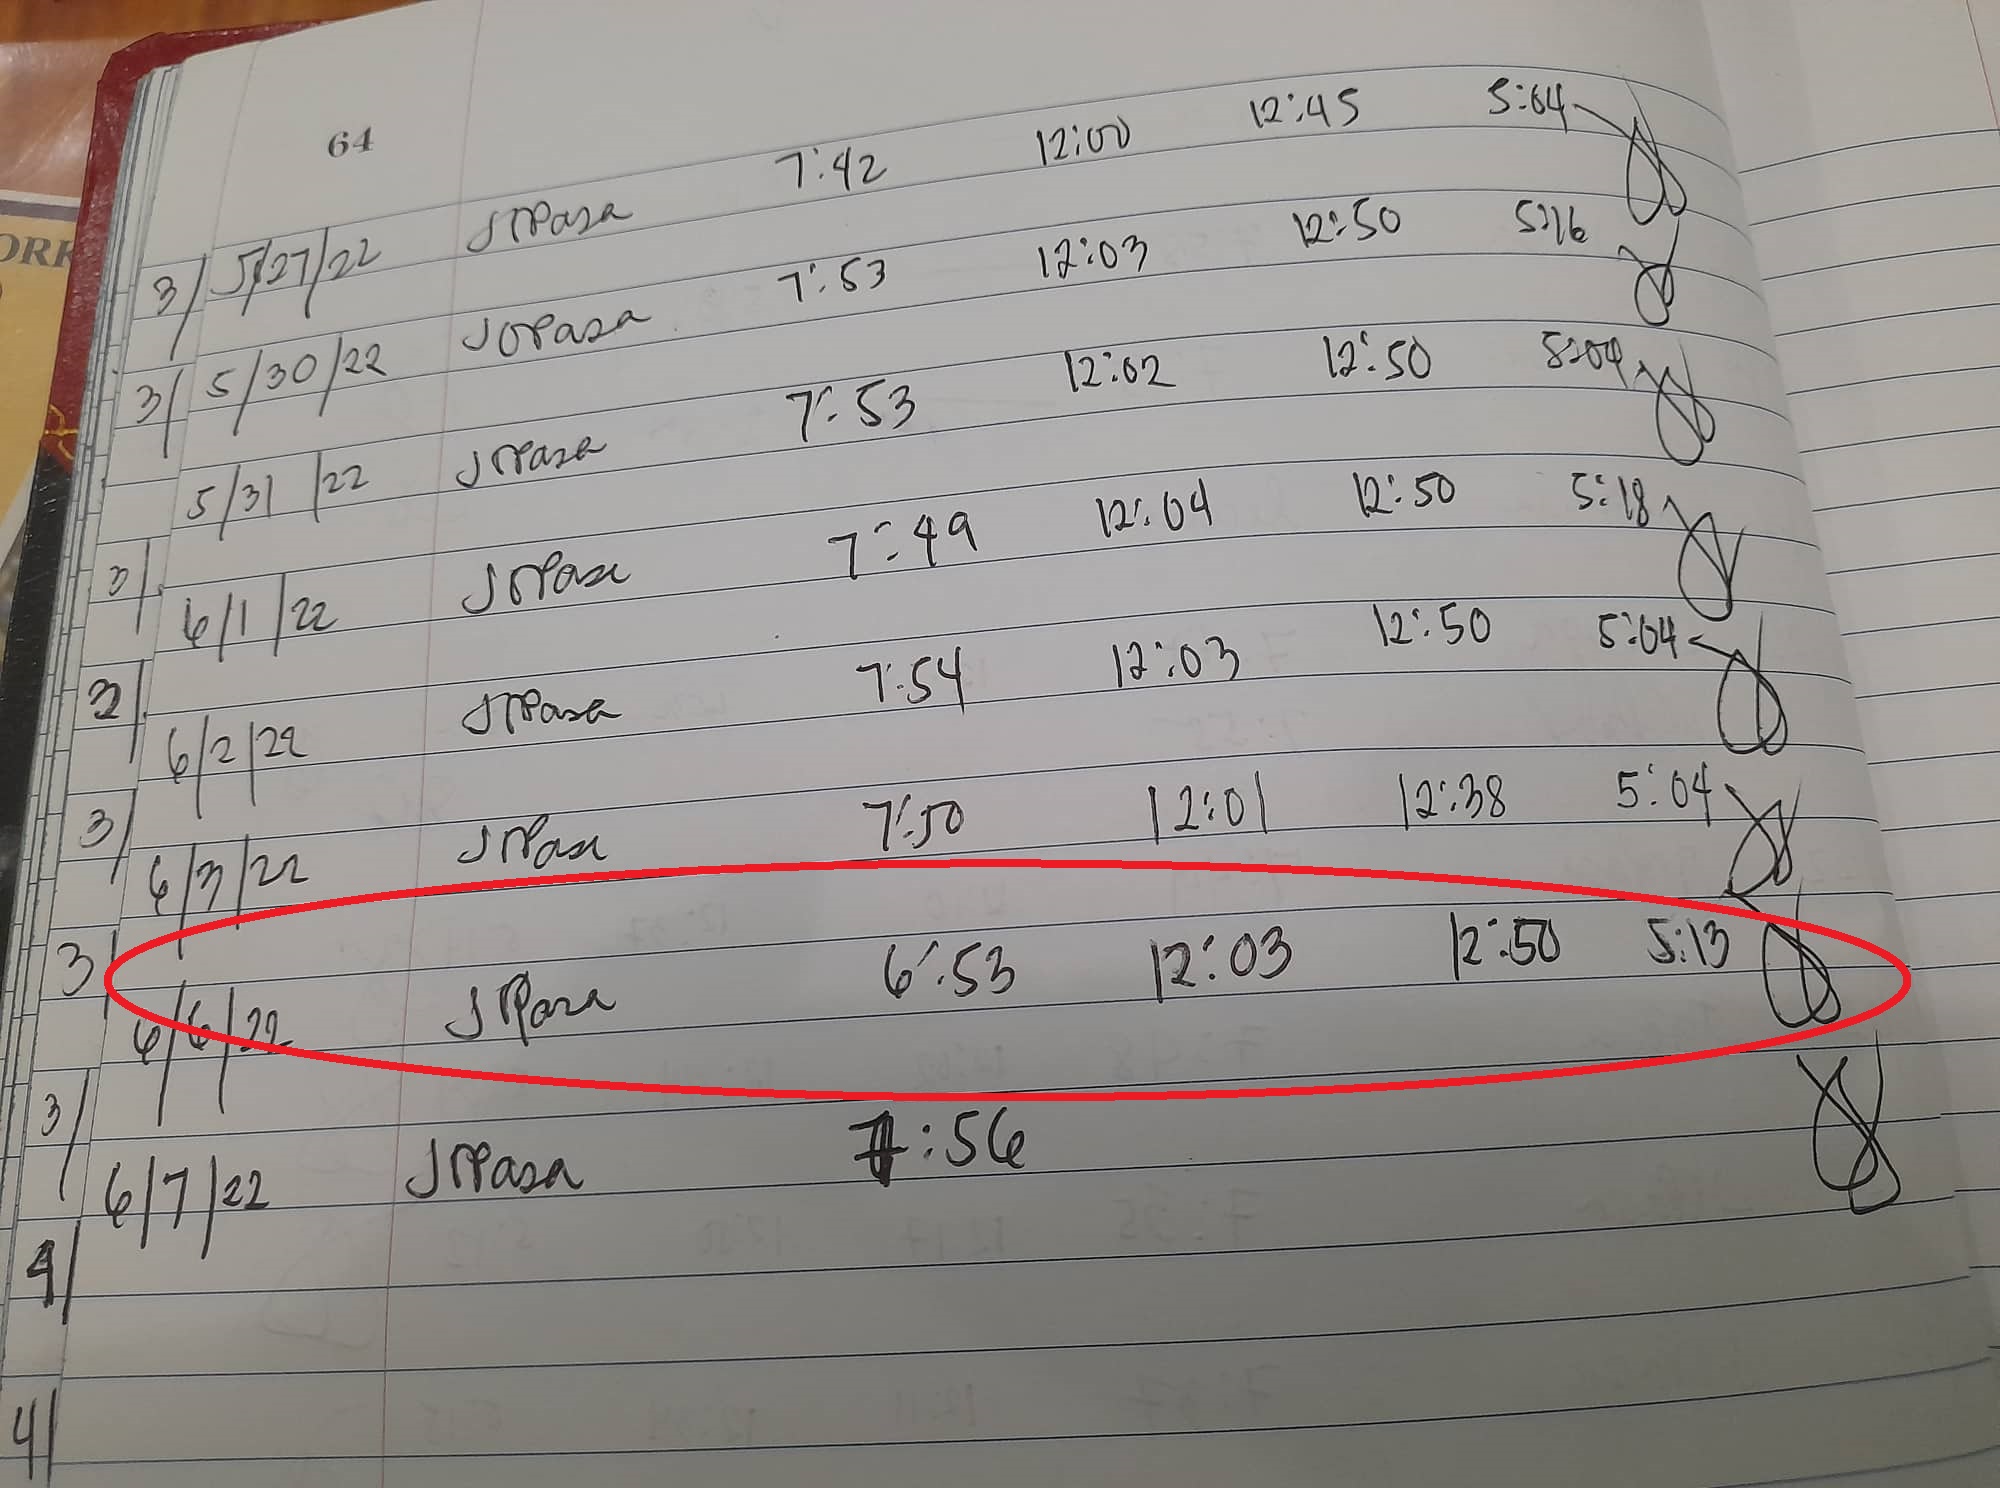 ORK
64
3/ 5/27/22 JOPasa 7:42 12:00 12:45 5:04
3/ 5/30/22 JOPasa 7:53 12:03 12:50 5:16
5/31/22 JOPasa 7:53 12:02 12:50 5:04
3/ 6/1/22 JOPasa 7:49 12:04 12:50 5:18
6/2/22 JOPasa 7:54 12:03 12:50 5:04
3/ 6/3/22 JOPasa 7:50 12:01 12:38 5:04
3/ 6/6/22 JOPasa 6:53 12:03 12:50 5:13
3/ 6/7/22 JOPasa 7:56
4/
4/